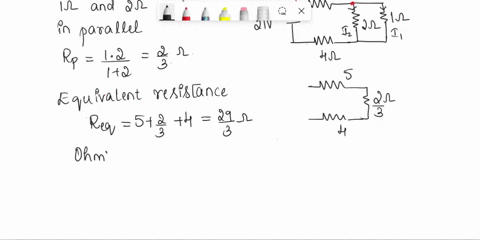 1Ω and 2Ω
in parallel
Rp = 1·2 / 1+2 = 2/3 Ω
Equivalent resistance
Req = 5 + 2/3 + 4 = 29/3 Ω
Ohm
21V
I2
2Ω
1Ω
I1
4Ω
5
2Ω/3
4